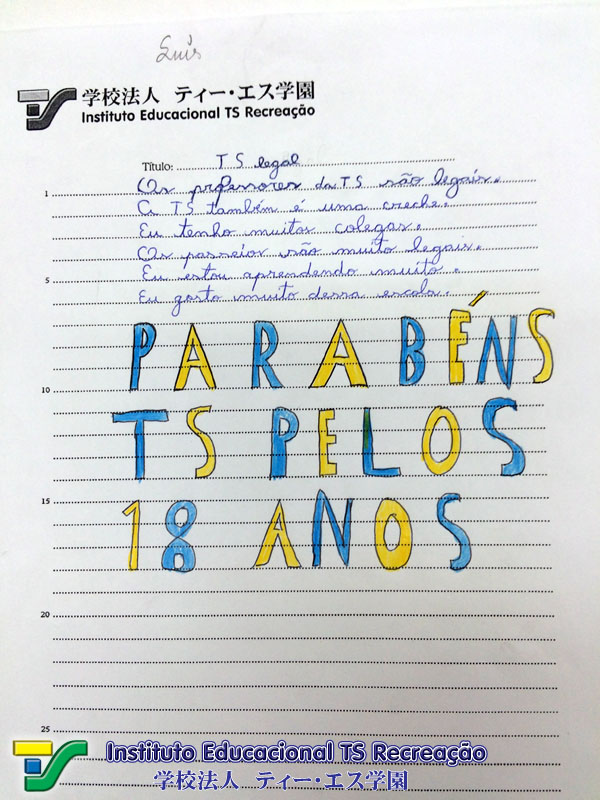 Luis
学校法人 ティー・エス学園
Instituto Educacional TS Recreação
Título: TS legal
1 Os professores da TS são legais.
A TS também é uma creche.
Eu tenho muitos colegas.
Os passeios são muito legais.
5 Eu estou aprendendo muito.
Eu gosto muito dessa escola.
PARABÉNS
10
TS PELOS
15
18 ANOS
20
25
TS Instituto Educacional TS Recreação
学校法人 ティー・エス学園